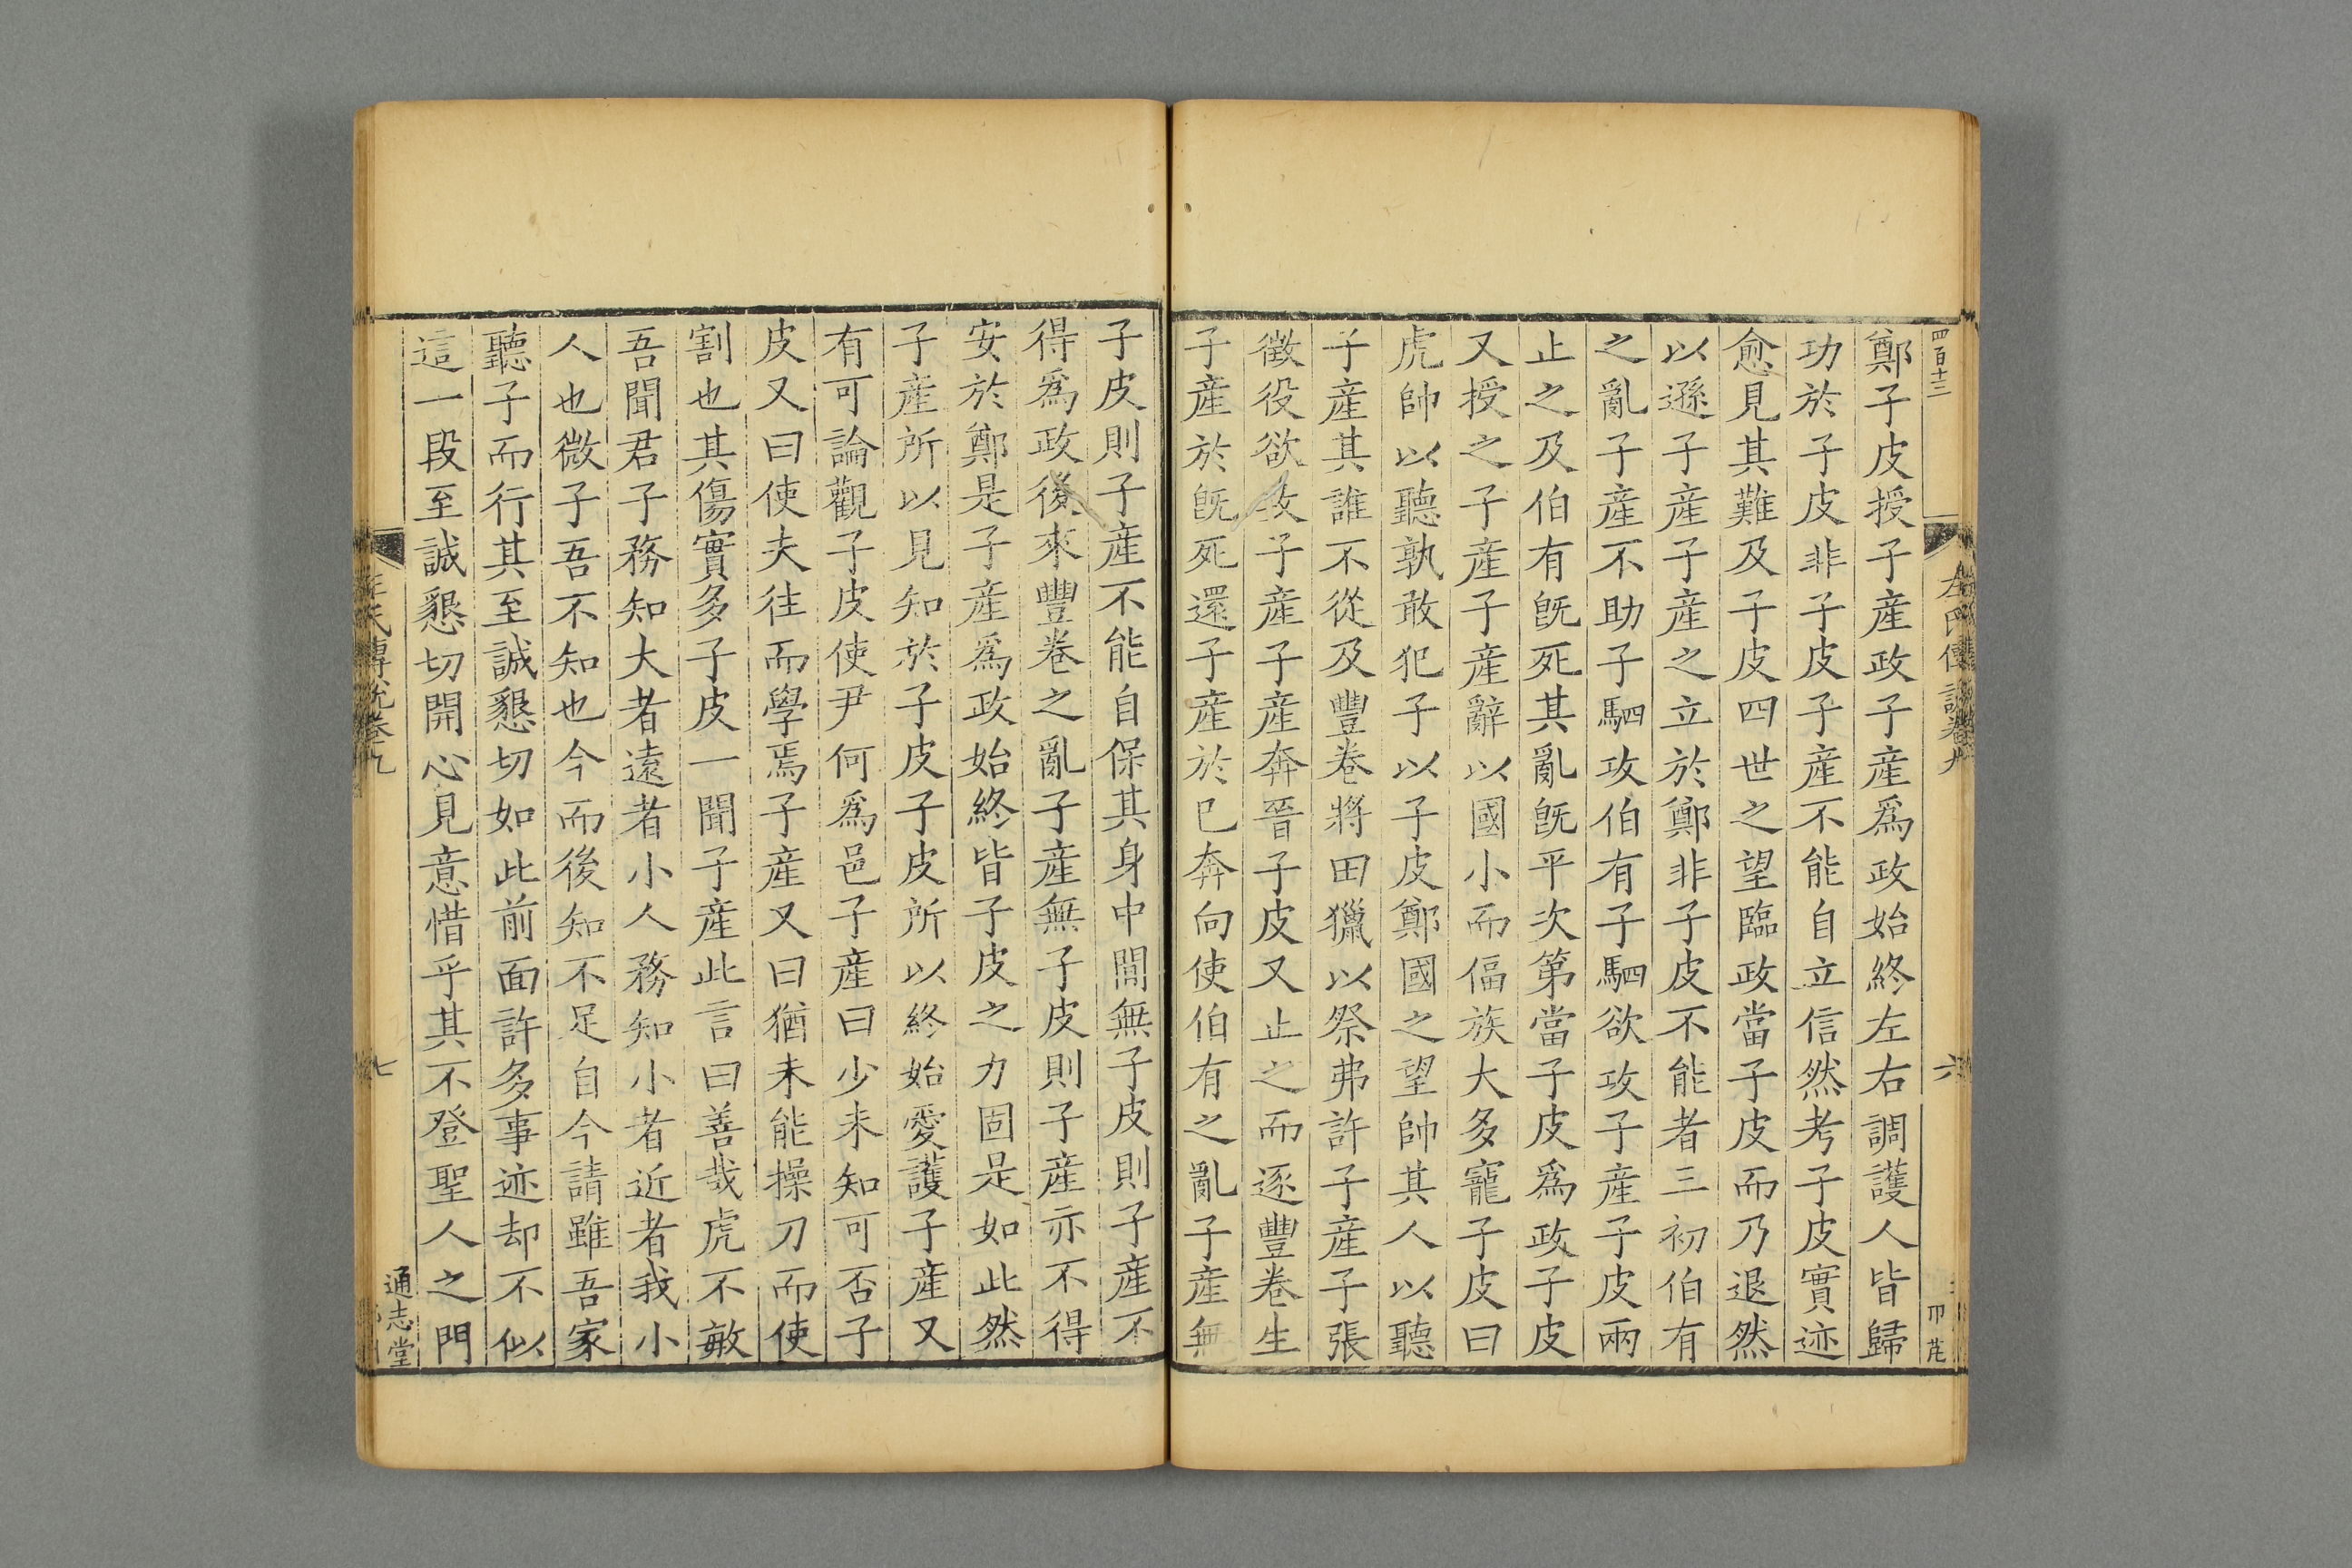 四百十三
左氏傳說卷九
六
鄭子皮授子產政子產爲政始終左右調護人皆歸
功於子皮非子皮子產不能自立信然考子皮實迹
愈見其難及子皮四世之望臨政當子皮而乃退然
以遜子產子產之立於鄭非子皮不能者三初伯有
之亂子產不助子駟攻伯有子駟欲攻子產子皮兩
止之及伯有旣死其亂旣平次第當子皮爲政子皮
又授之子產子產辭以國小而偪族大多寵子皮曰
虎帥以聽孰敢犯子以子皮鄭國之望帥其人以聽
子產其誰不從及豐卷將田獵以祭弗許子產子張
徵役欲攻子產子產奔晉子皮又止之而逐豐卷生
子產於旣死還子產於已奔向使伯有之亂子產無
子皮則子產不能自保其身中間無子皮則子產不
得爲政後來豐卷之亂子產無子皮則子產亦不得
安於鄭是子產爲政始終皆子皮之力固是如此然
子產所以見知於子皮子皮所以終始愛護子產又
有可論觀子皮使尹何爲邑子產曰少未知可否子
皮又曰使夫往而學焉子產又曰猶未能操刀而使
割也其傷實多子皮一聞子產此言曰善哉虎不敏
吾聞君子務知大者遠者小人務知小者近者我小
人也微子吾不知也今而後知不足自今請雖吾家
聽子而行其至誠懇切如此前面許多事迹却不似
這一段至誠懇切開心見意惜乎其不登聖人之門
左氏傳說卷九
七
通志堂